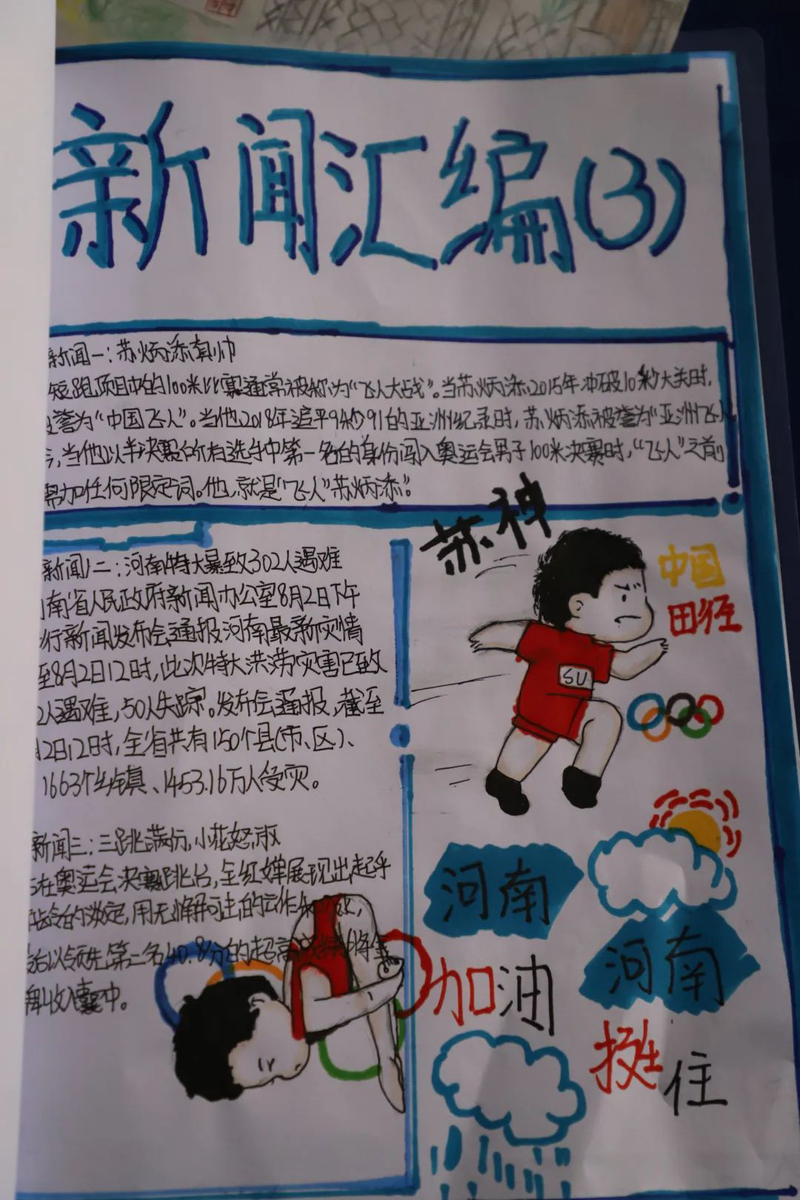 新闻汇编(3)
新闻一：苏炳添有帅
短跑项目中的100米比赛通常被称为“飞人大战”。当苏炳添2015年冲破10秒大关时，
誉为“中国飞人”。当他2018年追平9秒91的亚洲纪录时，苏炳添被誉为“亚洲飞人
，当他以半决赛所有选手中第一名的身份闯入奥运会男子100米决赛时，“飞人”之前
需加任何限定词。他，就是“飞人”苏炳添”。
苏神
中国
田径
SU
新闻二：河南特大暴致302人遇难
南省人民政府新闻办公室8月2日下午
行新闻发布会通报河南最新灾情
至8月2日12时，此次特大洪涝灾害已致
2人遇难，50人失踪。发布会通报，截至
2日12时，全省共有150个县(市、区)、
1663个乡镇、1453.16万人受灾。
新闻三：三跳满份，小花怒放
在奥运会决赛跳台，全红婵展现出起乎
龄的淡定，用无懈可击的动作
后以领先第二名40.8分的起高将金
收入囊中。
河南
加油
河南
挺住